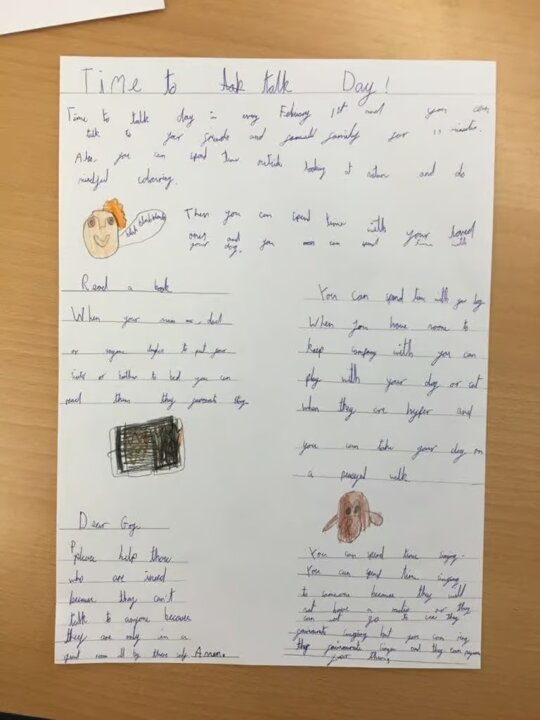 Time to talk Day!
Time to talk day is every February 1st and you can
talk to your friends and family for 11 minutes.
Also you can spend time outside looking at nature and do
mindful colouring.
blah blah blah
Then you can spend time with your loved
ones and you can spend time with
your dog.
Read a book
When your mum or dad
or anyone to put your
sister or brother to bed you can
read them they favourite
Dear God
Please help those
who are
because they can't
talk to anyone because
they are only in a
room by there self Amen.
You can spend time with your dog
When your home to
keep company with you can
play with your dog or cat
when they are hyper and
you can take your dog on
a walk
You can spend time singing.
You can spend time singing
to someone because they will
not have a radio or they
can not go to see they
favourite but you can sing
they favourite and they can